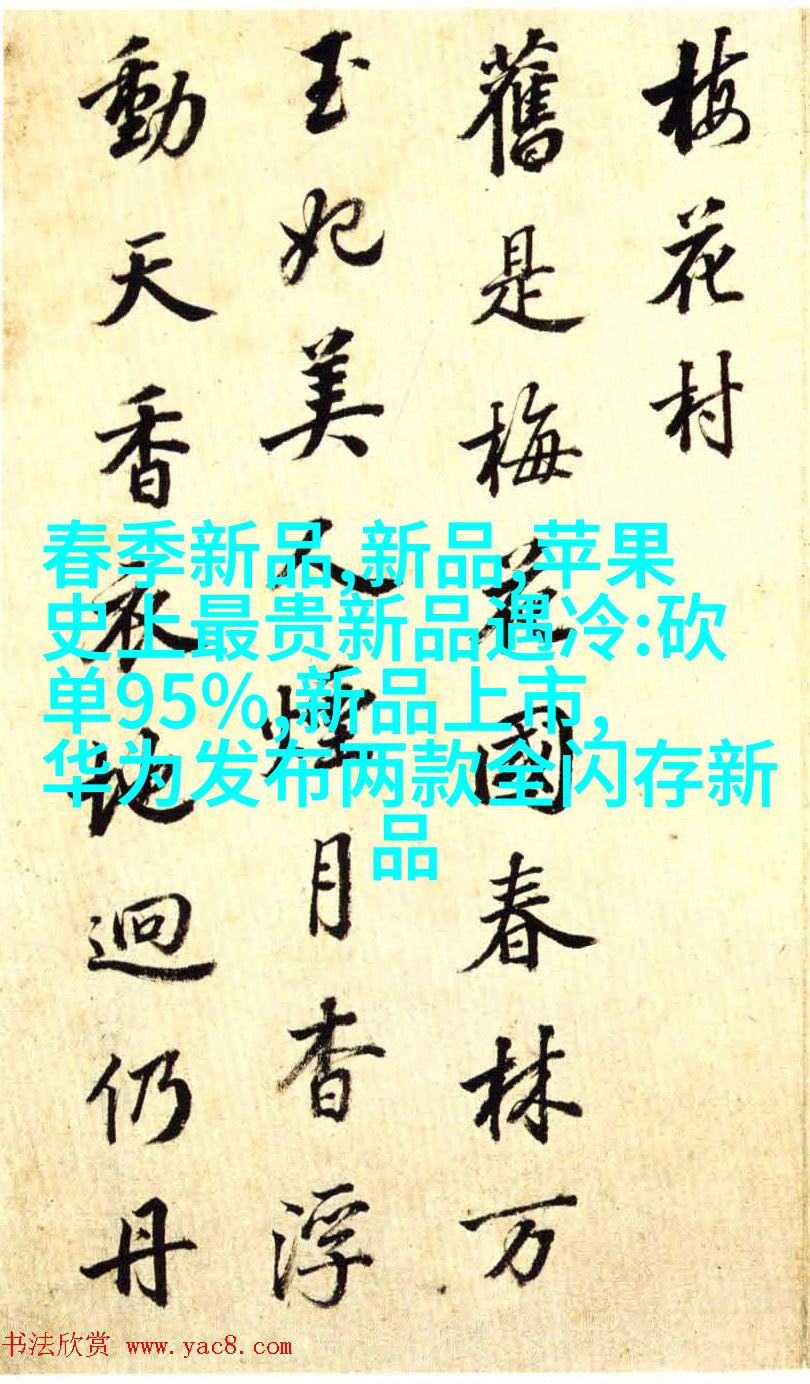 梅花村
舊是梅花國春林万
玉妃美人煙月杳浮
動天香地迥仍丹
春季新品,新品,苹果
史上最贵新品遇冷:砍
单95%,新品上市,
华为发布两款全闪存新
品
书法欣赏 www.yac8.com